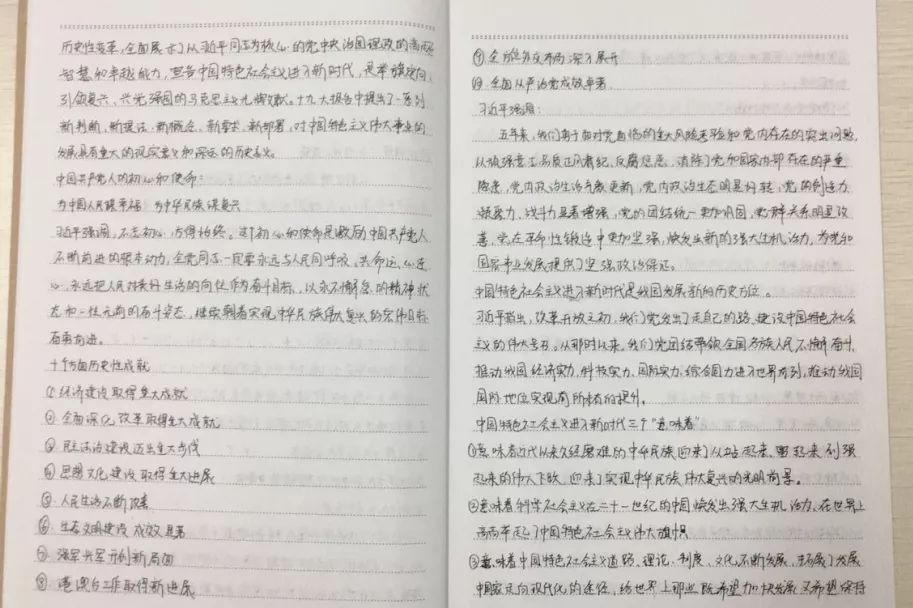 历史性变革,全面展示了从习近平同志为核心的党中央治国理政的高超
智慧和卓越能力,宣告中国特色社会主义进入新时代,是举旗定向、
引领复兴、兴党强国的马克思主义光辉文献。十九大报告中提出了一系列
新判断、新提法、新概念、新要求、新部署,对中国特色主义伟大事业的
发展具有重大的现实意义和深远的历史意义。
中国共产党人的初心和使命:
为中国人民谋幸福 为中华民族谋复兴
习近平强调,不忘初心,方得始终。这个初心和使命是激励中国共产党人
不断前进的根本动力,全党同志一定要永远与人民同呼吸、共命运、心连
心,永远把人民对美好生活的向往作为奋斗目标,以永不懈怠的精神状
态和一往无前的奋斗姿态,继续朝着实现中华民族伟大复兴的宏伟目标
奋勇前进。
十个方面历史性成就
①经济建设取得重大成就
②全面深化改革取得重大成就
③民主法治建设迈出重大步伐
④思想文化建设取得重大进展
⑤人民生活不断改善
⑥生态文明建设成效显著
⑦强军兴军开创新局面
⑧港澳台工作取得新进展
⑨全方位外交布局深入展开
⑩全面从严治党成效卓著
习近平强调:
五年来,我们勇于面对党面临的重大风险考验和党内存在的突出问题,
从顽强意志品质正风肃纪、反腐惩恶,消除了党和国家内部存在的严重
隐患,党内政治生活气象更新,党内政治生态明显好转,党的创造力、
凝聚力、战斗力显著增强,党的团结统一更加巩固,党群关系明显改
善,党在革命性锻造中更加坚强,焕发出新的强大生机活力,为党和
国家事业发展提供了坚强政治保证。
中国特色社会主义进入新时代是我国发展新的历史方位。
习近平指出,改革开放之初,我们党发出了走自己的路、建设中国特色社会
主义的伟大号召。从那时以来,我们党团结带领全国各族人民不懈奋斗,
推动我国经济实力、科技实力、国防实力、综合国力进入世界前列,推动我国
国际地位实现前所未有的提升。
中国特色社会主义进入新时代三个“意味着”
①意味着近代以来久经磨难的中华民族迎来了从站起来、富起来到强
起来的伟大飞跃,迎来了实现中华民族伟大复兴的光明前景。
②意味着科学社会主义在二十一世纪的中国焕发出强大生机活力,在世界上
高高举起了中国特色社会主义伟大旗帜
③意味着中国特色社会主义道路、理论、制度、文化不断发展,拓展了发展
中国家走向现代化的途径,给世界上那些既希望加快发展又希望保持